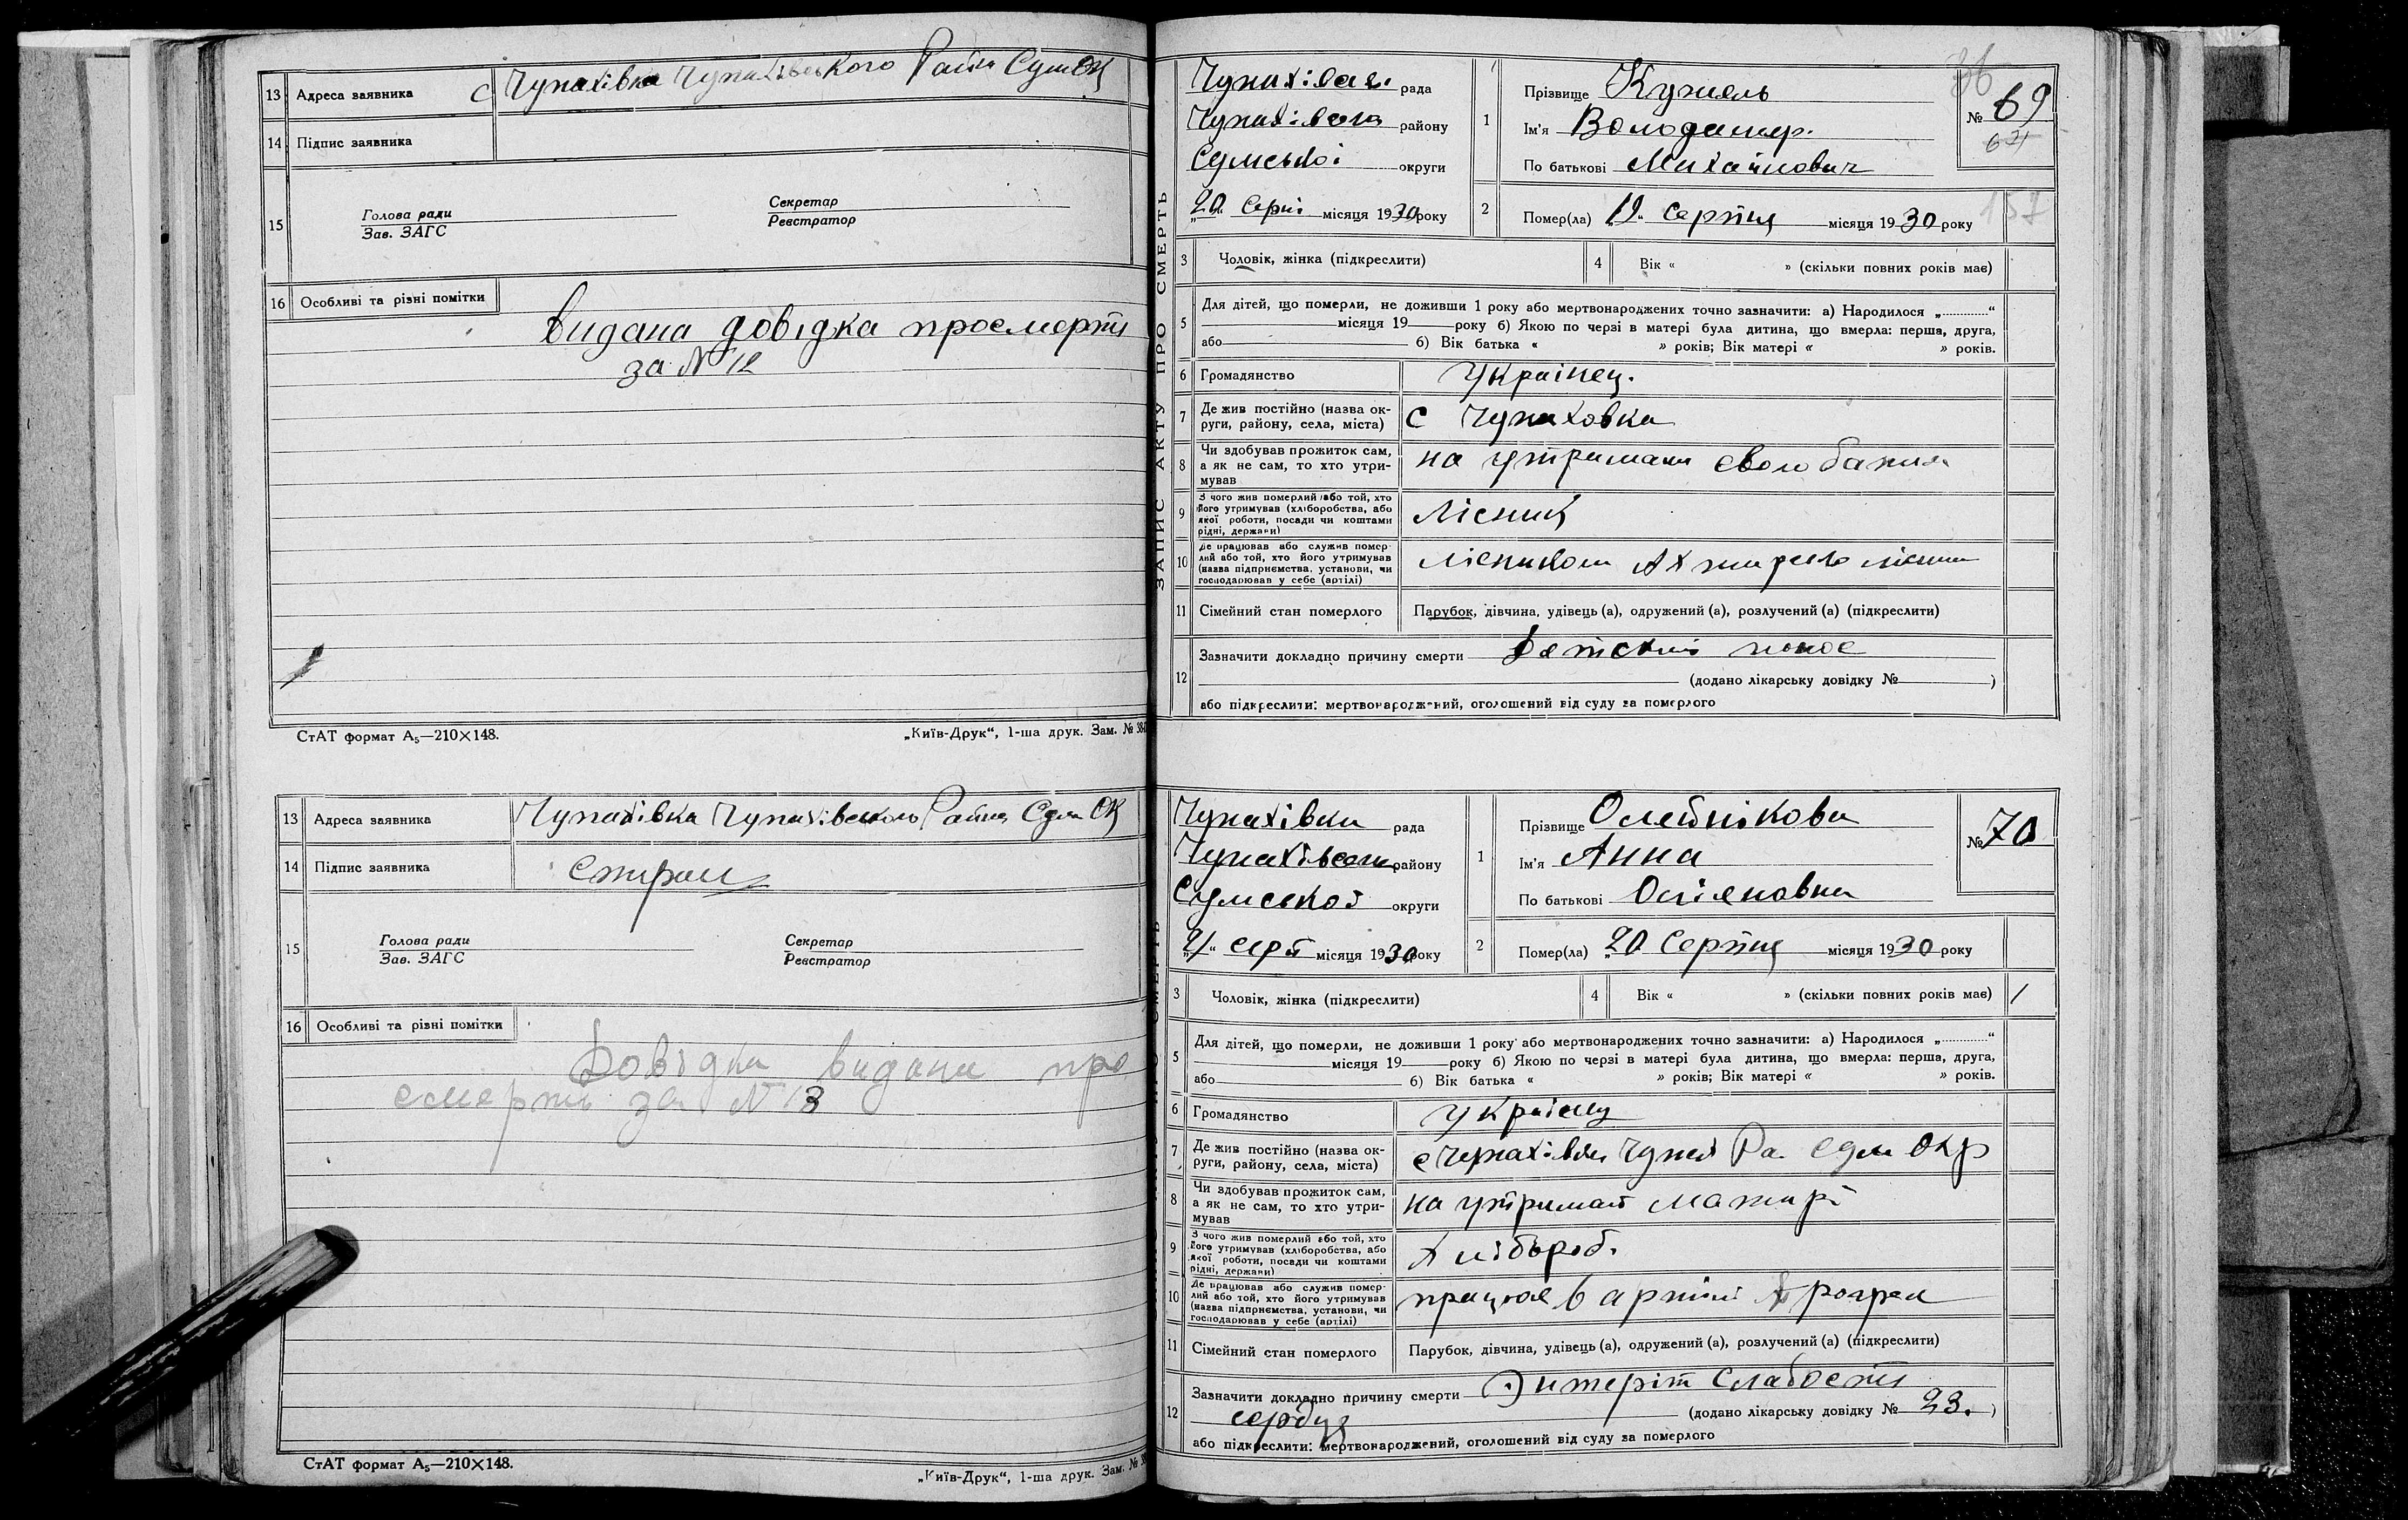 13 Адреса заявника с Чупахівка Чупахівського Район Сум Ок
14 Підпис заявника
15 Голова ради
Зав. ЗАГС
Секретар
Реєстратор
16 Особливі та різні помітки
Видана довідка просмерть
за № 12
СтАТ формат А₅—210×148.
„Київ-Друк“, 1-ша друк. Зам. №
13 Адреса заявника Чупахівка Чупахівського Район Сум Ок
14 Підпис заявника
15 Голова ради
Зав. ЗАГС
Секретар
Реєстратор
16 Особливі та різні помітки
Довідка видана про
смерть за № 13
СтАТ формат А₅—210×148.
„Київ-Друк“, 1-ша друк. Зам. №
ЗАПИС АКТУ ПРО СМЕРТЬ
36
рада
району
Сумської округи
20 Серп місяця 1930 року
1 Прізвище Кужель
Ім'я Володимир.
По батькові Михайлович
№ 69
67
2 Помер(ла) „19“ Серпня місяця 1930 року
157
3 Чоловік, жінка (підкреслити)
4 Вік « » (скільки повних років має)
5 Для дітей, що померли, не доживши 1 року або мертвонароджених точно зазначити: а) Народилося „............“
місяця 19 року б) Якою по черзі в матері була дитина, що вмерла: перша, друга,
або б) Вік батька « » років; Вік матері « » років.
6 Громадянство Українец.
7 Де жив постійно (назва округи, району, села, міста) с Чупаховка
8 Чи здобував прожиток сам,
а як не сам, то хто утри-
мував на утримані свого батька
9 З чого жив померлий або той, хто
його утримував (хліборобства, або
якої роботи, посади чи коштами
рідні, держави) Лісник
10 Де працював або служив помер-
лий або той, хто його утримував
(назва підприємства, установи, чи
господарював у себе (артілі) лісником
11 Сімейний стан померлого Парубок, дівчина, удівець (а), одружений (а), розлучений (а) (підкреслити)
12 Зазначити докладно причину смерти Детский понос
(додано лікарську довідку № )
або підкреслити: мертвонароджений, оголошений від суду за померлого
Чупахівка рада
району
Сумської округи
„21“ серп місяця 1930 року
1 Прізвище Олейнікова
Ім'я Анна
По батькові
№ 70
2 Помер(ла) „20 Серпня місяця 1930 року
3 Чоловік, жінка (підкреслити)
4 Вік « » (скільки повних років має) 1
5 Для дітей, що померли, не доживши 1 року або мертвонароджених точно зазначити: а) Народилося „............“
місяця 19 року б) Якою по черзі в матері була дитина, що вмерла: перша, друга,
або б) Вік батька « » років; Вік матері « » років.
6 Громадянство
7 Де жив постійно (назва округи, району, села, міста) с Чупахівка Чупах Ра Сум Окр
8 Чи здобував прожиток сам,
а як не сам, то хто утри-
мував на утримані матирі
9 З чого жив померлий або той, хто
його утримував (хліборобства, або
якої роботи, посади чи коштами
рідні, держави) Хлібороб.
10 Де працював або служив помер-
лий або той, хто його утримував
(назва підприємства, установи, чи
господарював у себе (артілі) працює в артілі
11 Сімейний стан померлого Парубок, дівчина, удівець (а), одружений (а), розлучений (а) (підкреслити)
12 Зазначити докладно причину смерти Энтеріт Слабость
сердця
(додано лікарську довідку № 23. )
або підкреслити: мертвонароджений, оголошений від суду за померлого